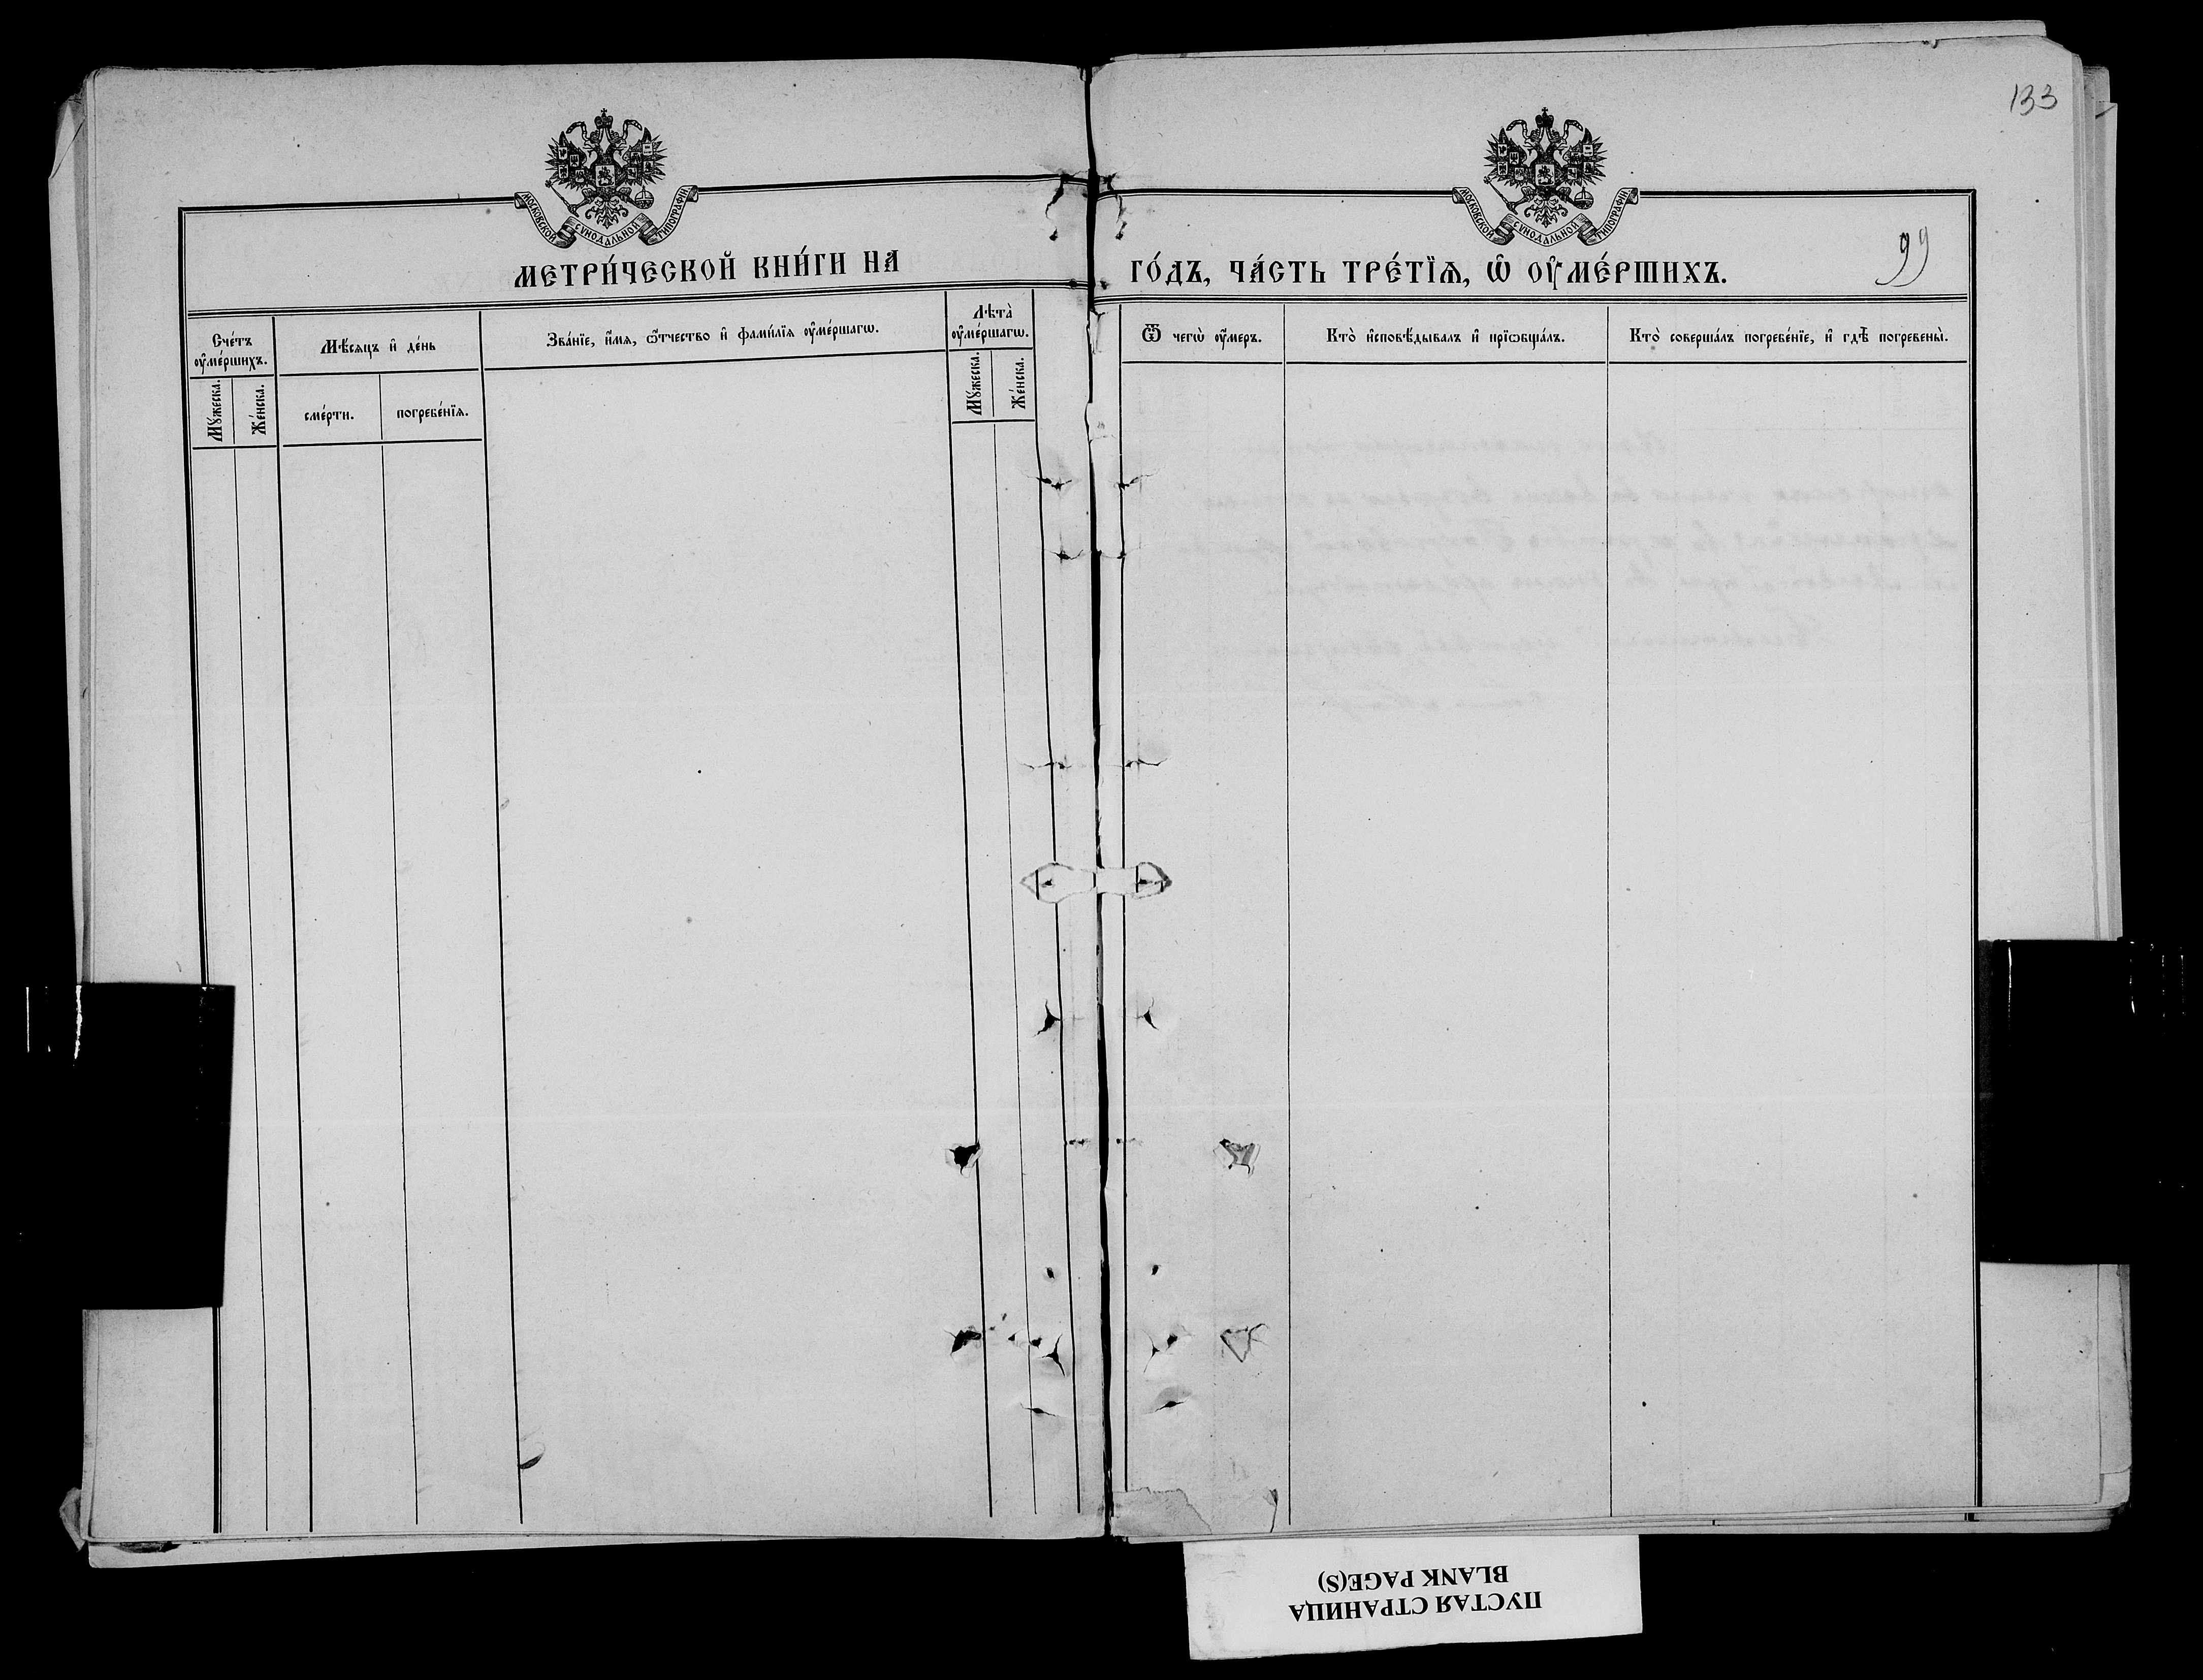 133
МОСКОВСКОЙ СѴНОДАЛЬНОЙ ТИПОГРАФІИ
МОСКОВСКОЙ СѴНОДАЛЬНОЙ ТИПОГРАФІИ
МЕТРИ́ЧЕСКОЙ КНИ́ГИ НА
ГО́ДЪ, ЧА́СТЬ ТРЕ́ТЇѦ, Ѡ҆ ОУ҆МЕ́РШИХЪ.
99
Сче́тъ оу҆ме́ршихъ.
Мѣ́сяцъ и҆ де́нь
Зва́нїе, и҆́мѧ, ѻ҆́тчество и҆ фами́лїѧ оу҆ме́ршагѡ.
Лѣта̀ оу҆ме́ршагѡ.
Ѿ чегѡ̀ оу҆́меръ.
Кто̀ и҆сповѣ́дывалъ и҆ прїѡбща́лъ.
Кто̀ соверша́лъ погребе́нїе, и҆ гдѣ̀ погребены̀.
Мꙋ́жеска.
Же́нска.
сме́рти.
погребе́нїѧ.
Мꙋ́жеска.
Же́нска.
ПУСТАЯ СТРАНИЦА
BLANK PAGE(S)